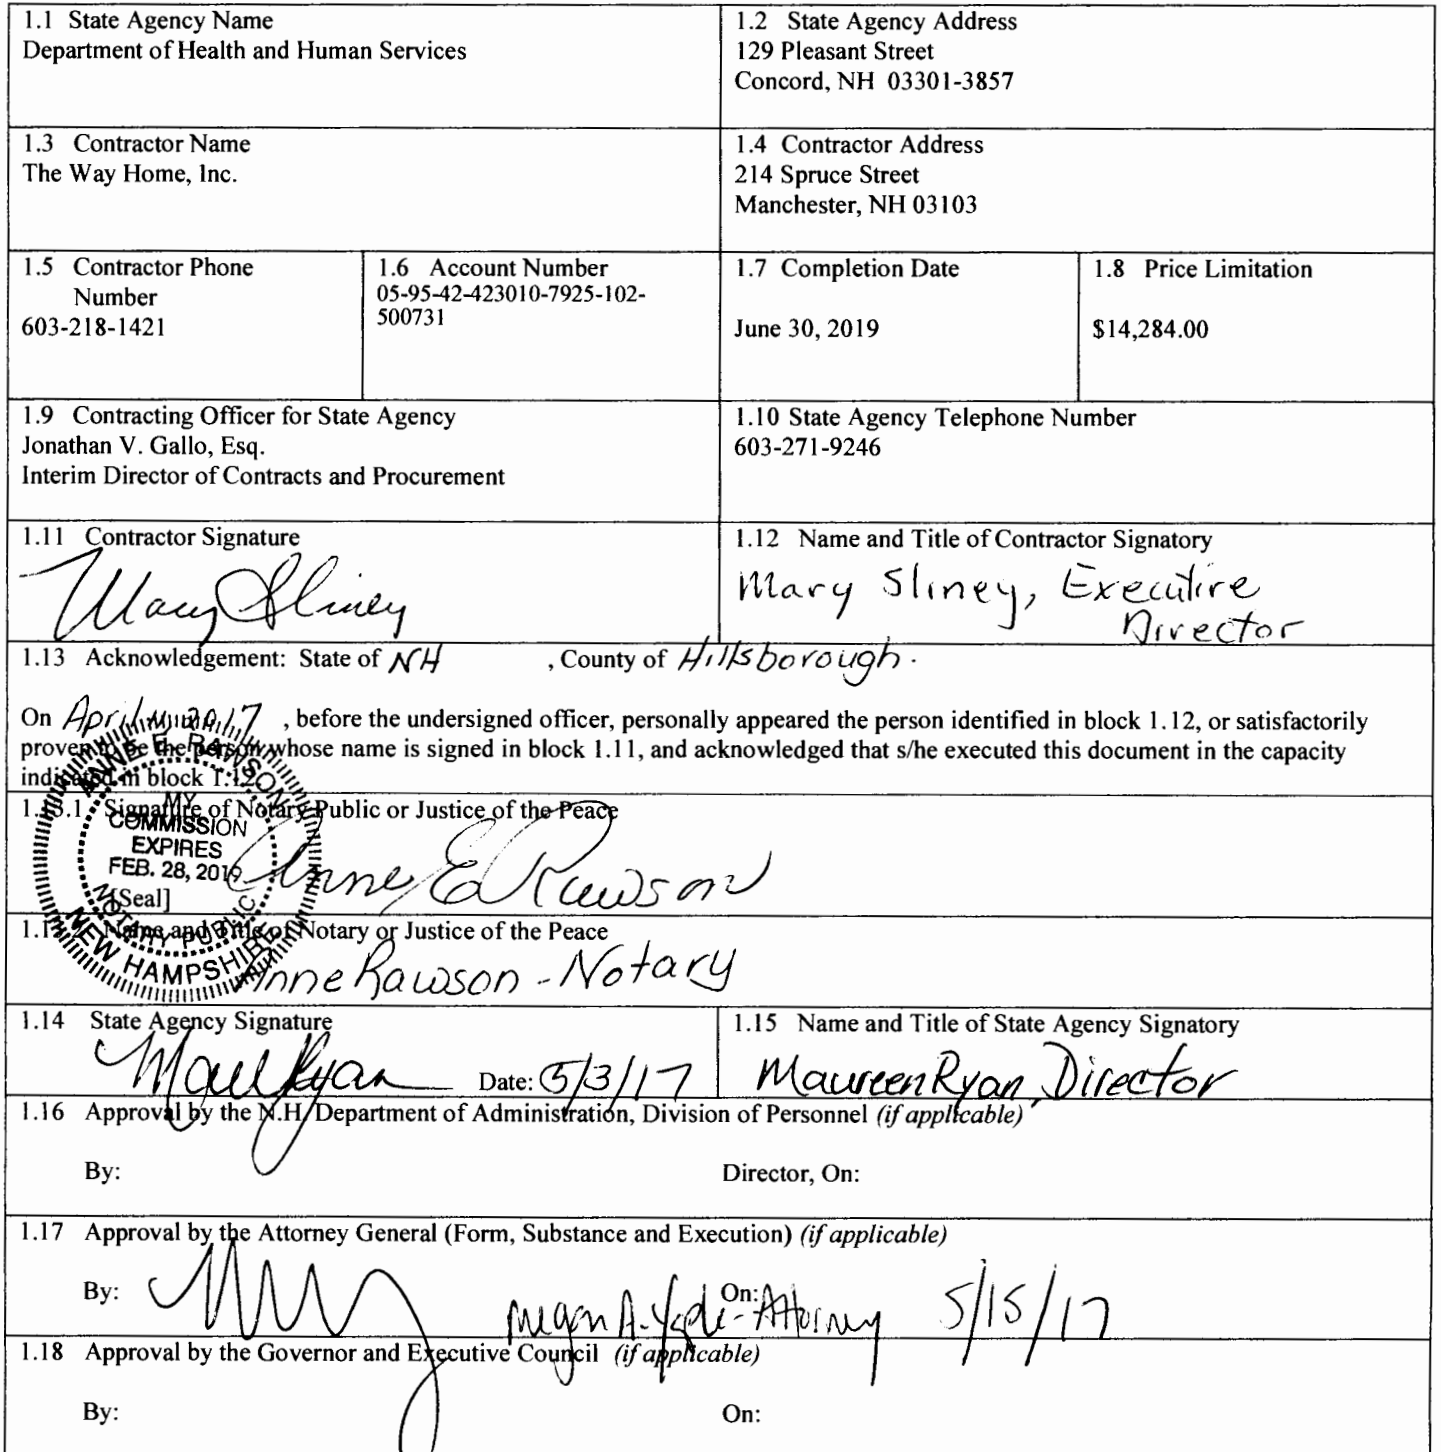 1.1 State Agency Name
Department of Health and Human Services
1.2 State Agency Address
129 Pleasant Street
Concord, NH 03301-3857
1.3 Contractor Name
The Way Home, Inc.
1.4 Contractor Address
214 Spruce Street
Manchester, NH 03103
1.5 Contractor Phone
Number
603-218-1421
1.6 Account Number
05-95-42-423010-7925-102-
500731
1.7 Completion Date
June 30, 2019
1.8 Price Limitation
$14,284.00
1.9 Contracting Officer for State Agency
Jonathan V. Gallo, Esq.
Interim Director of Contracts and Procurement
1.10 State Agency Telephone Number
603-271-9246
1.11 Contractor Signature
Mary Sliney
1.12 Name and Title of Contractor Signatory
Mary Sliney, Executive
Director
1.13 Acknowledgement: State of NH , County of Hillsborough.
On April 2017 , before the undersigned officer, personally appeared the person identified in block 1.12, or satisfactorily
proven to be the person whose name is signed in block 1.11, and acknowledged that s/he executed this document in the capacity
indicated in block 1.12.
1.13.1 Signature of Notary Public or Justice of the Peace
Anne E Rawson
[Seal]
ANNE E. RAWSON
MY
COMMISSION
EXPIRES
FEB. 28, 2019
NOTARY PUBLIC
NEW HAMPSHIRE
Name and Title of Notary or Justice of the Peace
Anne Rawson - Notary
1.14 State Agency Signature
Ryan Date: 5/3/17
1.15 Name and Title of State Agency Signatory
Maureen Ryan, Director
1.16 Approval by the N.H. Department of Administration, Division of Personnel (if applicable)
By: Director, On:
1.17 Approval by the Attorney General (Form, Substance and Execution) (if applicable)
By: Megan A. - Attorney On: 5/15/17
1.18 Approval by the Governor and Executive Council (if applicable)
By: On: